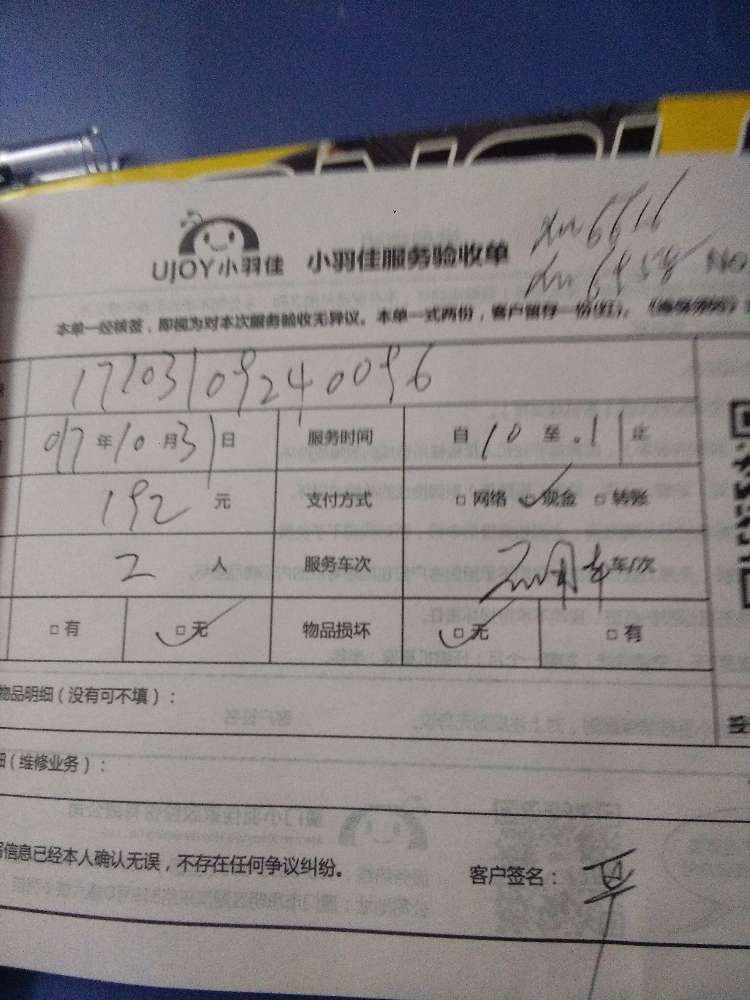 xm6616
UJOY小羽佳 小羽佳服务验收单
xm6958 NO
本单一经核签，即视为对本次服务验收无异议。本单一式两份，客户留存一份(红)。
17103109240096
017年10月31日 服务时间 自10至.11止
192元 支付方式 □网络 现金 □转账
2人 服务车次 车/次
□有 □无 物品损坏 □无 □有
物品明细（没有可不填）：
（维修业务）：
信息已经本人确认无误，不存在任何争议纠纷。 客户签名：